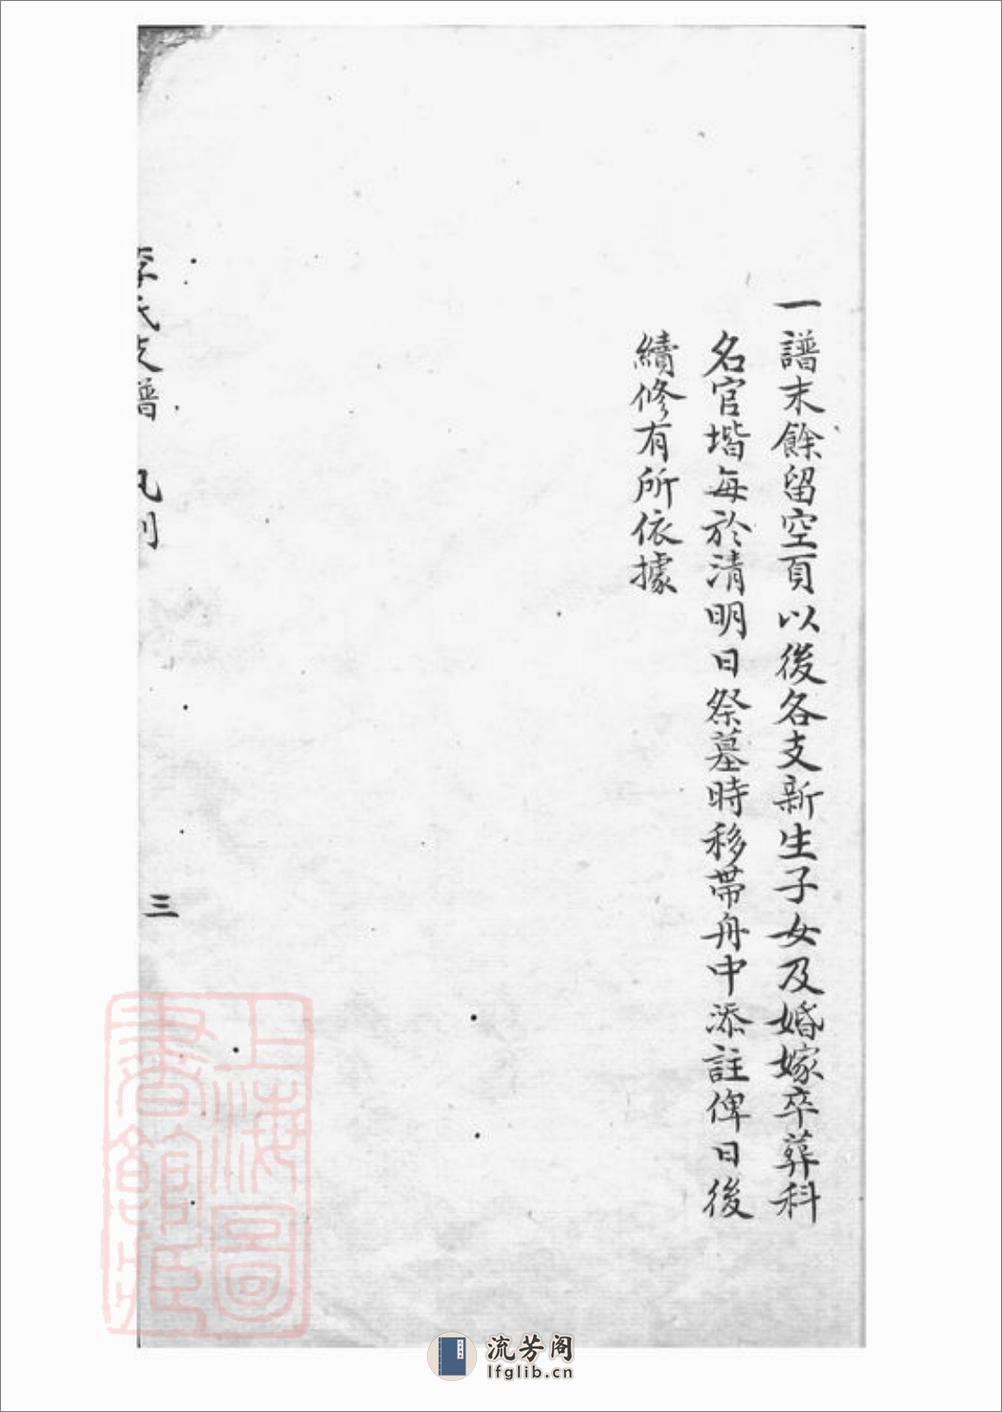 一譜末餘留空頁以後各支新生子女及婚嫁卒葬科
名官堦每於清明日祭墓時移帶舟中添註俾日後
續修有所依據
李氏支譜 凡例
三
上海圖
書館藏
流芳阁
lfglib.cn